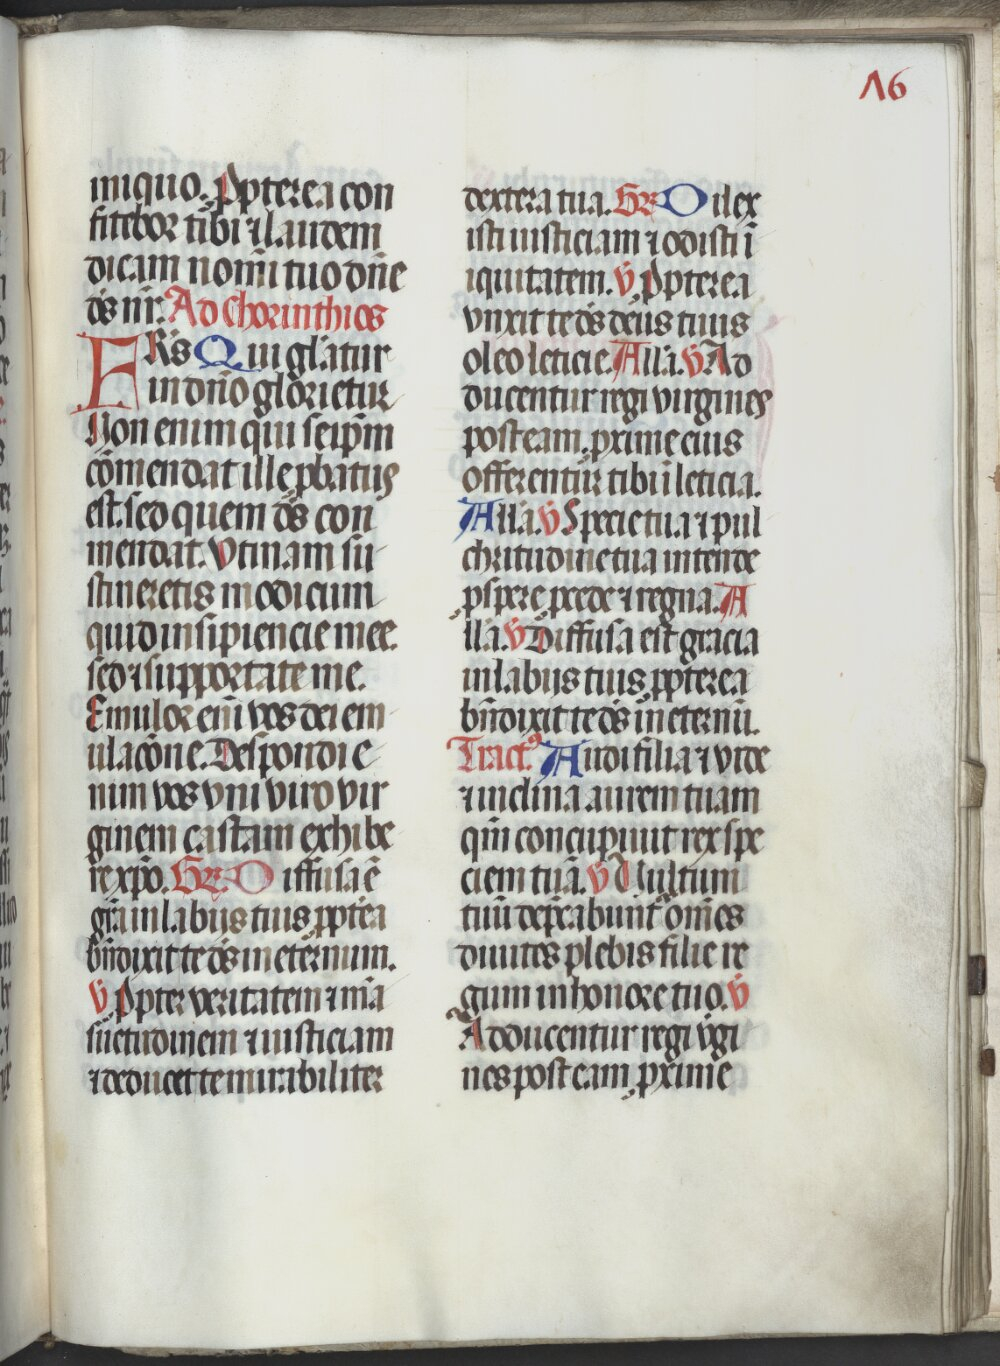 16
iniquo. ꝓpterea con
fitebor tibi ⁊ laudem
dicam nomī tuo dn̄e
ds̄ nr̄. Ad Chorinthios
FRs̄ Qui gl̄atur
in dn̄o glorietur
Non enim qui seip̄m
cōmendat ille ꝓbatus
est. sed quem ds̄ con
mendat. Vtinam su
stineretis modicum
quid insipiencie mee.
sed ⁊ supportate me.
Emulor em̄ vos dei em
ulacōne. Despondi e
nim vos vni viro vir
ginem castam exhibe
re xp̄o. Gr̄ Diffusa ē
grā in labijs tuis ꝓpt̄ea
bn̄dixit te ds̄ in eternum.
V̄ Ꝓpter veritatem ⁊ mā
suetudinem ⁊ iusticiam
⁊ deducet te mirabiliter
dextera tua. Gr̄ Dilex
isti iusticiam ⁊ odisti ī
iquitatem. V̄ Ꝓpterea
vnxit te ds̄ deus tuus
oleo leticie. All̄a. V̄ Ad
ducentur regi virgines
post eam. ꝓxime eius
offerentur tibi ī leticia.
All̄a. V̄ Specie tua ⁊ pul
chritudine tua intende
ꝓspere ꝓcede ⁊ regna. A
ll̄a. V̄ Diffusa est gracia
in labijs tuis ꝓpterea
bn̄dixit te ds̄ in eternū.
Tractꝰ Audi filia ⁊ vide
⁊ inclina aurem tuam
qm̄ concupiuit rex spe
ciem tuā. V̄ Uultum
tuū dep̄cabunt᷑ om̄es
diuites plebis filie re
gum in honore tuo. V̄
Adducentur regi v̄gi
nes post eam ꝓxime